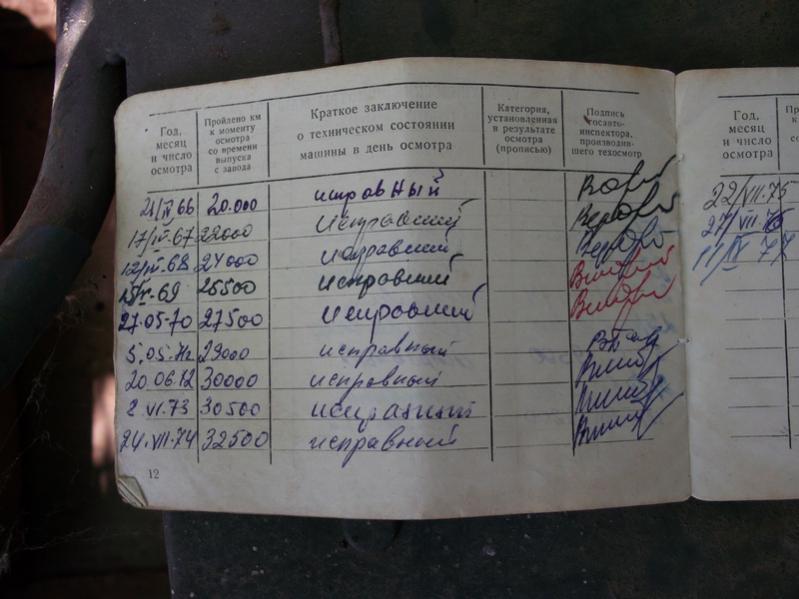 Год, месяц и число осмотра
Пройдено км к моменту осмотра со времени выпуска с завода
Краткое заключение о техническом состоянии машины в день осмотра
Категория, установленная в результате осмотра (прописью)
Подпись госавто-инспектора, производив-шего техосмотр
21/IV 66 20.000 исправный
17/IV-67 22000 исправний
12/IV-68 24000 исправний
69 25500 исправний
27.05-70 27500 исправний
5.05. 29000 исправный
20.06.12 30000 исправный
2.VI.73 30500 исправний
24.VII.74 32500 исправный
12
Год, месяц и число осмотра
22/VII.75
27/VII
11/IX 77